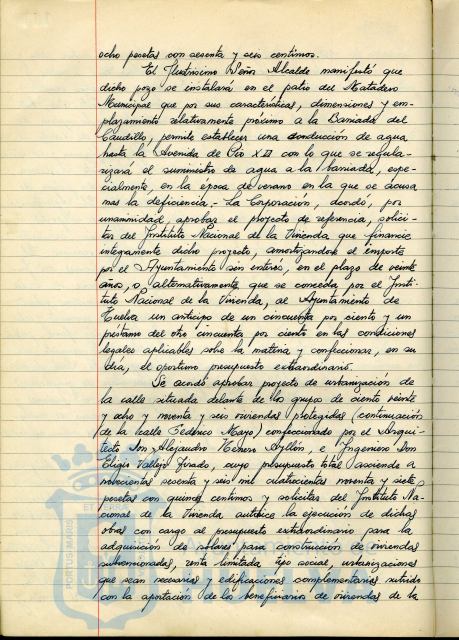 ocho pesetas con sesenta y seis centimos.
El Ilustrísimo Señor Alcalde manifestó que
dicho pozo se instalará en el patio del Matadero
Municipal que por sus características, dimensiones y em-
plazamiento relativamente próximo a la Barriada del
Caudillo, permite establecer una conducción de agua
hasta la Avenida de Pio XII con lo que se regula-
rizará el suministro de agua a la barriada, espe-
cialmente, en la época de verano en la que se acusa
mas la deficiencia.- La Corporación, acordo, por
unanimidad, aprobar el proyecto de referencia, solici-
tar del Instituto Nacional de la Vivienda que financie
integramente dicho proyecto, amortizandose el importe
por el Ayuntamiento sin interés, en el plazo de veinte
años, o alternativamente que se conceda por el Insti-
tuto Nacional de la Vivienda, al Ayuntamiento de
Huelva un anticipo de un cincuenta por ciento y un
préstamo del otro cincuenta por ciento en las condiciones
legales aplicables sobre la materia y confeccionar, en su
día, el oportuno presupuesto extraordinario.
Se acordó aprobar proyecto de urbanización de
la calle situada delante de los grupos de ciento veinte
y ocho y noventa y seis viviendas protegidas (continuación
de la calle Federico Mayo) confeccionado por el Arqui-
tecto Don Alejandro Herrero Ayllón, e Ingeniero Don
Eligio Vallejo Jurado, cuyo presupuesto total asciende a
novecientas sesenta y seis mil cuatrocientas noventa y siete
pesetas con quince centimos y solicitar del Instituto Na-
cional de la Vivienda autorice la ejecución de dichas
obras con cargo al presupuesto extraordinario para la
adquisición de solares para construcción de viviendas
subvencionadas, renta limitada, tipo social, urbanizaciones
que sean necesarias y edificaciones complementarias nutrido
con la aportación de los beneficiarios de viviendas de la
PORTUS MARIS
ET TERRAE